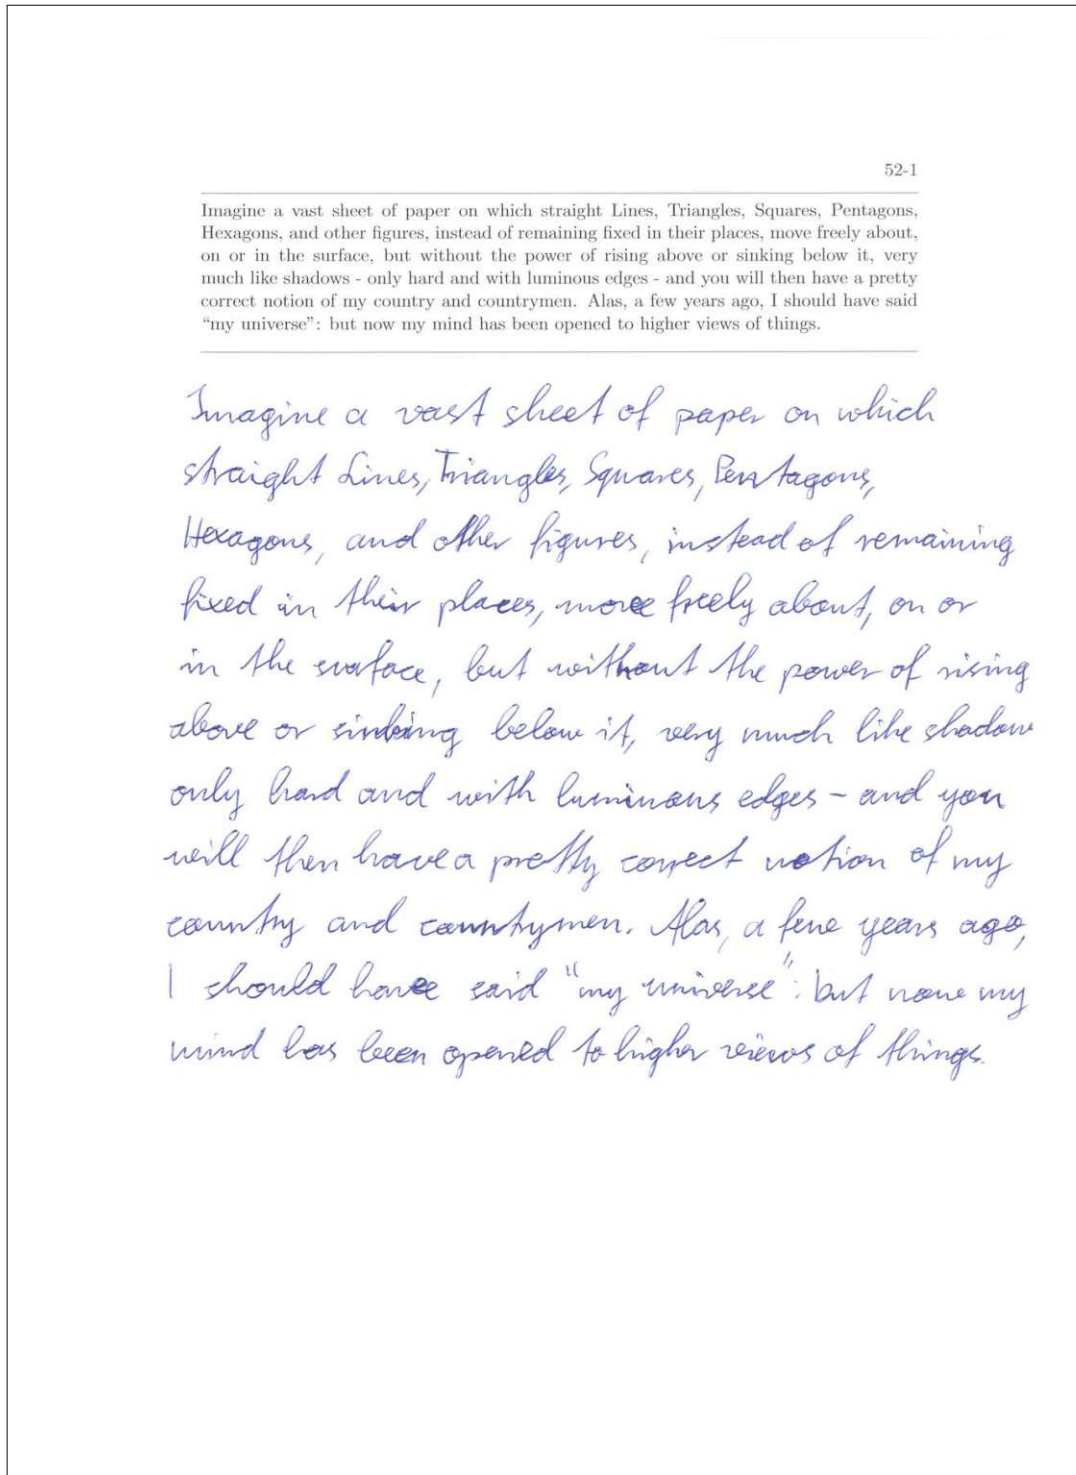 52-1
Imagine a vast sheet of paper on which straight Lines, Triangles, Squares, Pentagons,
Hexagons, and other figures, instead of remaining fixed in their places, move freely about,
on or in the surface, but without the power of rising above or sinking below it, very
much like shadows - only hard and with luminous edges - and you will then have a pretty
correct notion of my country and countrymen. Alas, a few years ago, I should have said
“my universe”: but now my mind has been opened to higher views of things.
Imagine a vast sheet of paper on which
straight Lines, Triangles, Squares, Pentagons,
Hexagons, and other figures, instead of remaining
fixed in their places, move freely about, on or
in the surface, but without the power of rising
above or sinking below it, very much like shadow
only hard and with luminous edges - and you
will then have a pretty correct notion of my
country and countymen. Alas, a few years ago,
I should have said "my universe": but now my
mind has been opened to higher views of things.